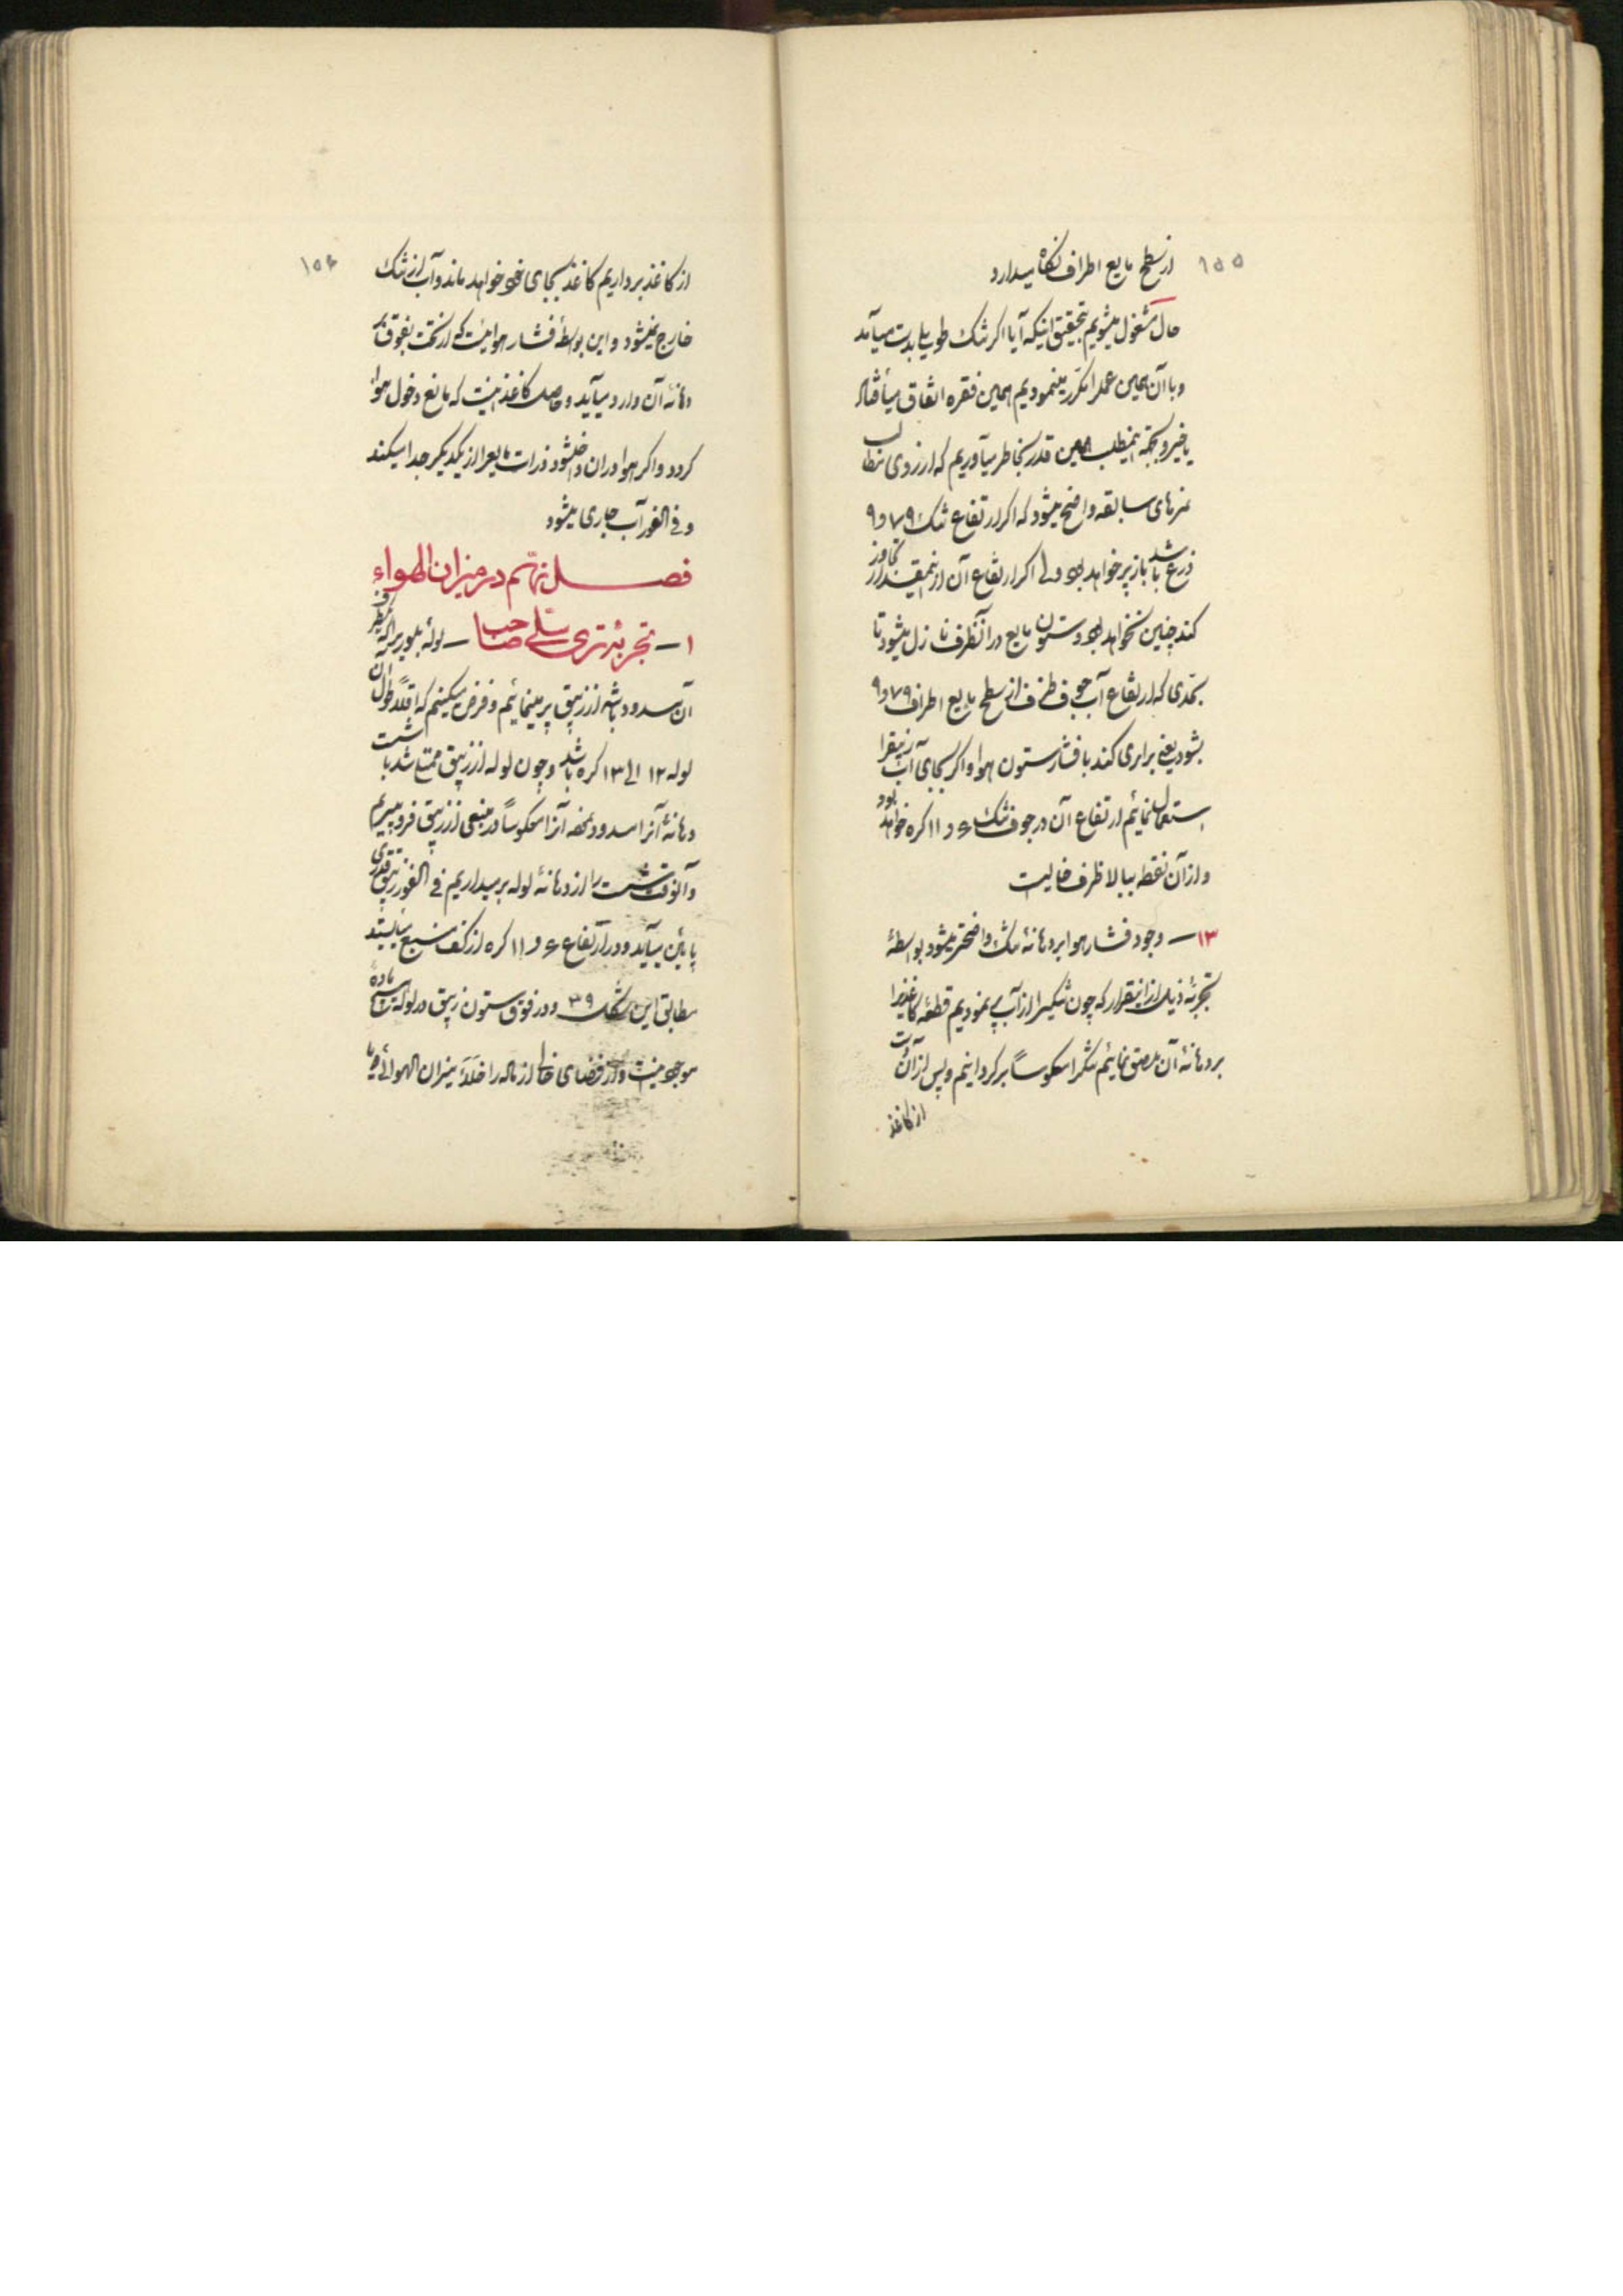 ۱۵۵
از سطح مایع اطراف نگاه میدارد
حال مشغول میشویم بتحقیق اینکه آیا اگر تنک طویلی بدست میآمد
و با آن همین عمل را مکرر مینمودیم همین فقره اتفاق میافتاد
یا خیر و بجهة اینمطلب همین قدر بخاطر میآوریم که از روی مطالب
نمرهای سابقه واضح میشود که اگر ارتفاع تنک ۷۹ر۹
ذرع باشد باز پر خواهد بود ولی اگر ارتفاع آن از اینمقدار تجاوز
کند چنین نخواهد بود و ستون مایع در آنظرف نازل میشود تا
بحدی که ارتفاع آب جوف ظرف از سطح مایع اطراف ۷۹ر۹
بشود یعنی برابری کند با فشار ستون هوا و اگر بجای آب زیبق را
استعمال نمائیم ارتفاع آن در جوف تنک ۶ر۱۱ گره خواهد بود
و از آن نقطه ببالا ظرف خالیست
۱۳ — وجود فشار هوا بر دهانهٔ تنک واضحتر میشود بواسطهٔ
تجربهٔ ذیل از اینقرار که چون تنگیرا از آب پر نمودیم قطعهٔ کاغذیرا
بر دهانهٔ آن ملصق نمائیم تنگرا معکوساً برگردانیم و پس از آن دست
از کاغذ
۱۵۶
از کاغذ برداریم کاغذ بجای خود خواهد ماند و آب از تنک
خارج نمیشود و این بواسطهٔ فشار هوائیست که از تحت بفوق بر
دهانهٔ آن وارد میآید و حاصل کاغذ اینست که مانع دخول هوا
گردد و اگر هوا در آن داخلشود ذرات مایع را از یکدیگر جدا میکند
و فی الفور آب جاری میشود
فصل نهم در میزان الهواء
۱ — تجربهٔ تری سلی صاحب — لولهٔ بلوریرا که یکطرف
آن مسدود باشد از زیبق پر مینمائیم و فرض میکنیم که اقلاً طول آن
لوله ۱۲ الی ۱۳ گره باشد و چون لوله از زیبق ممتلی شد با شست
دهانهٔ آنرا مسدود نموده آنرا معکوساً در منبعی از زیبق فرو میبریم
و آنوقت شست را از دهانهٔ لوله برمیداریم فی الفور زیبق قدری
پایین میآید و در ارتفاع ۶ر۱۱ گره از کف منبع میایستد
مطابق این شکل ۳۹ و در فوق ستون زیبق در لوله ماده
موجود نیست و این فضای خالی از ماده را خلاء میزان الهوائی گویند